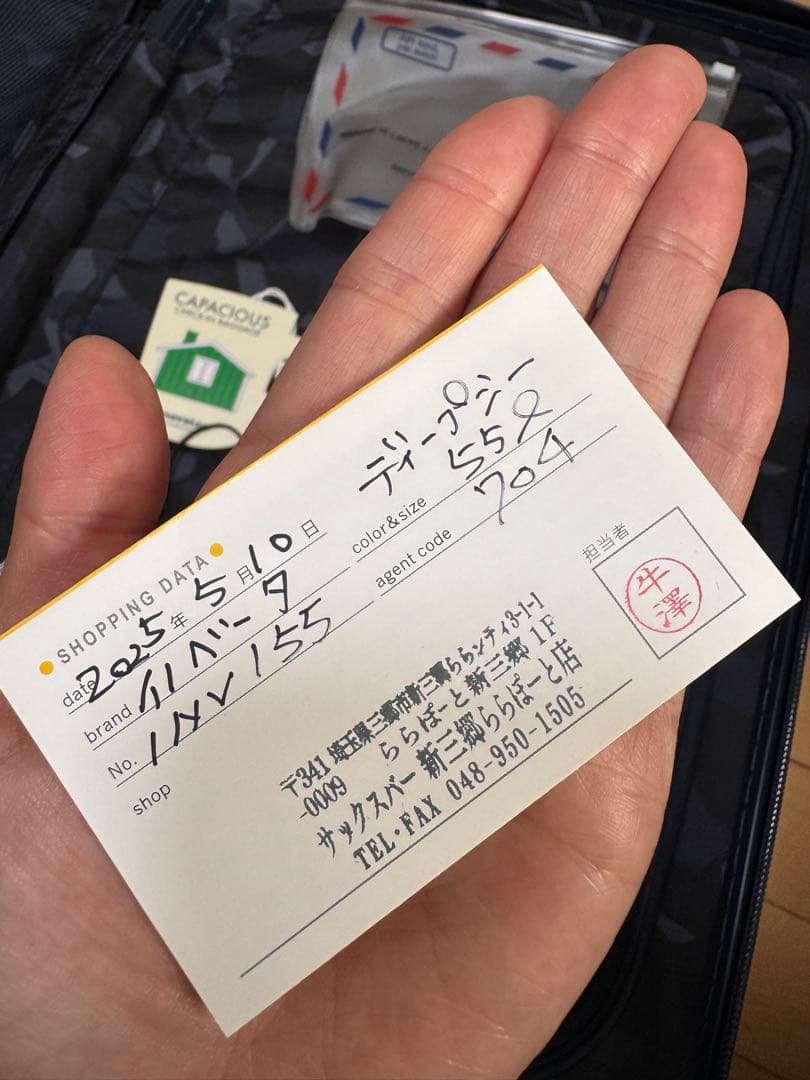 AIR MAIL
CAPACIOUS
CHECK-IN BAGGAGE
SHOPPING DATA
date 2025年 5月 10日
brand イノベータ
No. INV 155
color&size ディープシー 55ℓ
agent code 704
shop
〒341-0009 埼玉県三郷市新三郷ららシティ3-1-1
ららぽーと新三郷 1F
サックスバー 新三郷ららぽーと店
TEL・FAX 048-950-1505
担当者
牛澤